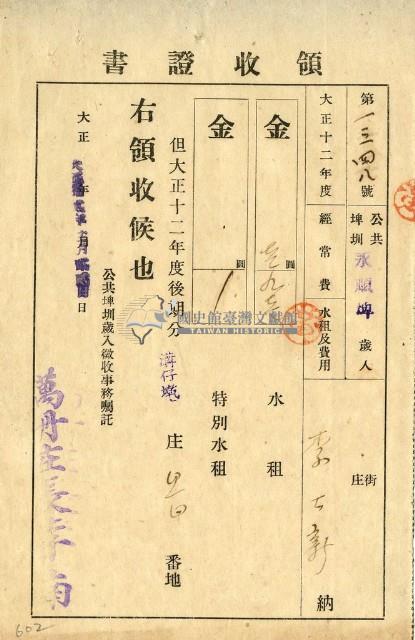 領收證書
第一三四八號
公共埤圳
永順埤
歲入
大正十二年度
經常費
水租及費用
街庄
李 新 納
金
圓
水租
金
圓
特別水租
但大正十二年度後期分
溝仔墘
庄
番地
右領收候也
大正 年 月 日
公共埤圳歲入徵收事務囑託
萬丹庄長李南
國史館臺灣文獻館
TAIWAN HISTORICA
602